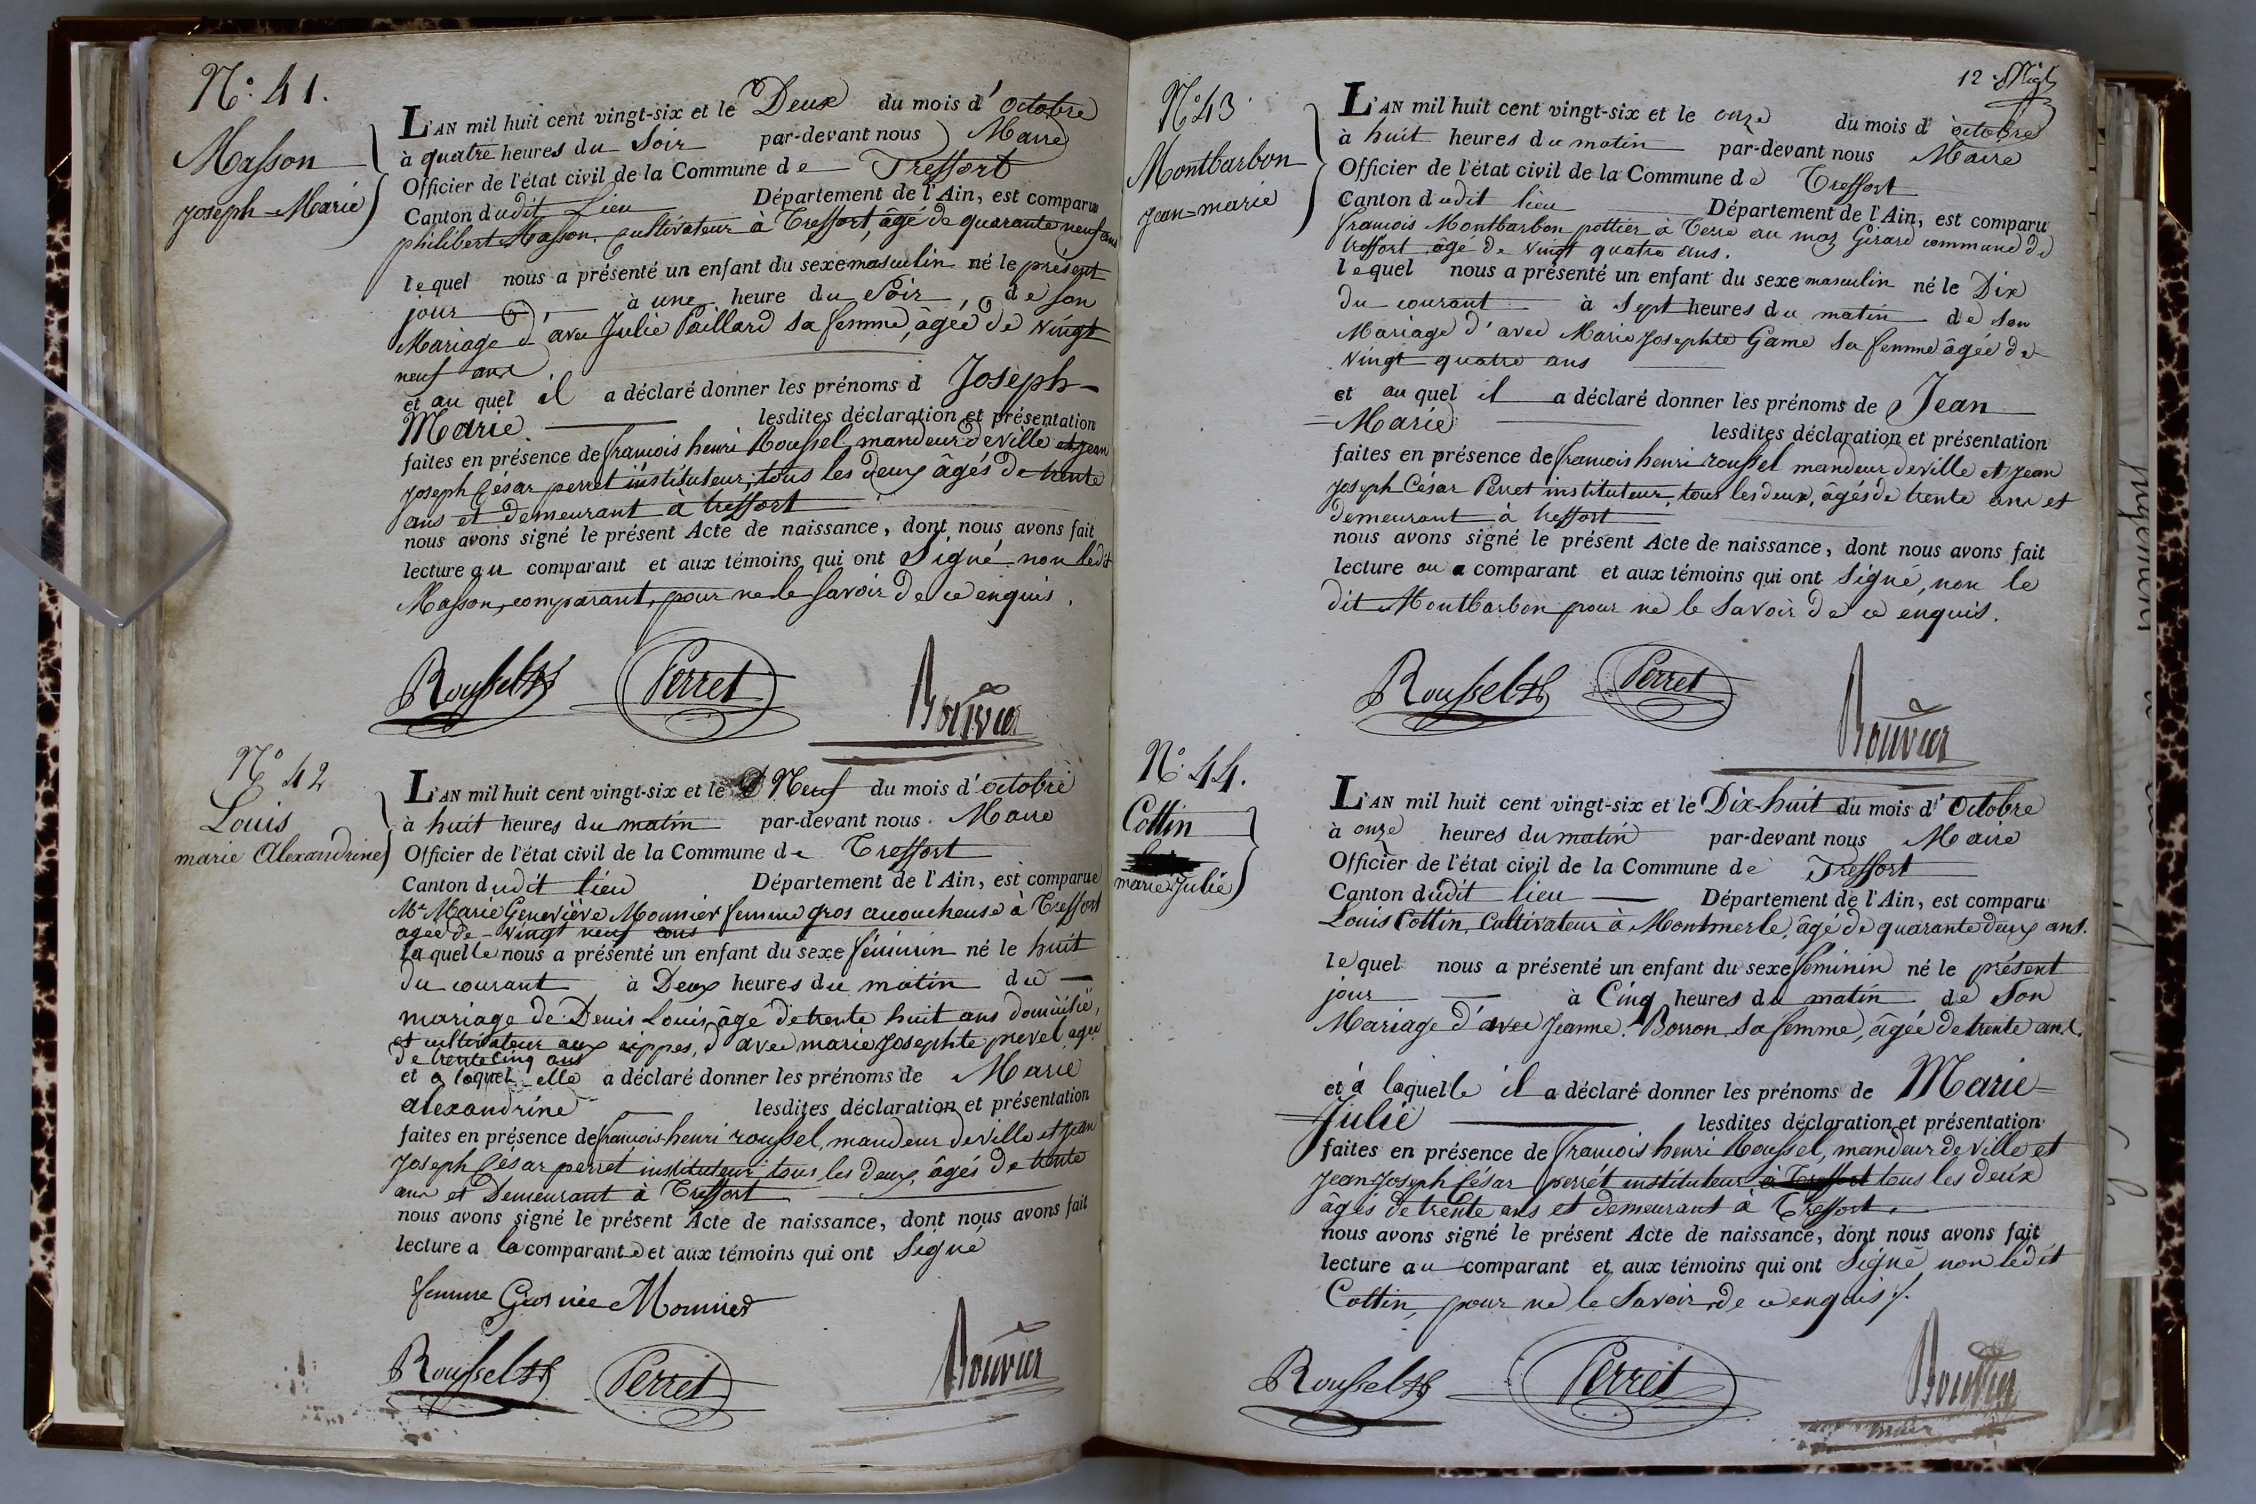 N.° 41.
Masson
Joseph-Marie
L'AN mil huit cent vingt-six et le Deux du mois d'octobre
à quatre heures du Soir par-devant nous Maire
Officier de l'état civil de la Commune de Treffort
Canton dudit Lieu Département de l'Ain, est comparu
philibert Masson, Cultivateur à Treffort, âgé de quarante neuf ans
lequel nous a présenté un enfant du sexe masculin né le présent
jour à une heure du Soir, de son
Mariage d'avec Julie Paillard sa femme, âgée de vingt
neuf ans
et au quel il a déclaré donner les prénoms d Joseph-
Marie lesdites déclaration et présentation
faites en présence de francois henri Roussel, mandeur de ville et jean
joseph César perret instituteur, tous les deux âgés de trente
ans et demeurant à treffort
nous avons signé le présent Acte de naissance, dont nous avons fait
lecture au comparant et aux témoins qui ont Signé, non ledit
Masson, comparant, pour ne le savoir de ce enquis.
Roussel Perret Bouvier
N° 42
Louis
marie Alexandrine
L'AN mil huit cent vingt-six et le Neuf du mois d'octobre
à huit heures du matin par-devant nous Maire
Officier de l'état civil de la Commune de Treffort
Canton dudit lieu Département de l'Ain, est comparue
Me Marie Geneviève Mounier femme gros accoucheuse à Treffort
agée de vingt neuf ans
laquelle nous a présenté un enfant du sexe féminin né le huit
du courant à Deux heures du matin du
mariage de Denis Louis, âgé de trente huit ans domicilié,
et cultivateur aux rippes, d'avec marie Josephte prevel agée
de trente cinq ans
et a laquel elle a déclaré donner les prénoms de Marie
alexandrine lesdites déclaration et présentation
faites en présence de francois henri roussel, mandeur de ville et jean
Joseph César perret instituteur tous les deux âgés de trente
ans et Demeurant à Treffort
nous avons signé le présent Acte de naissance, dont nous avons fait
lecture a la comparante et aux témoins qui ont Signé
femme Gros née Mounier
Roussel Perret Bouvier
12
N° 43
Montbarbon
jean-marie
L'AN mil huit cent vingt-six et le onze du mois d'octobre
à huit heures du matin par-devant nous Maire
Officier de l'état civil de la Commune de Treffort
Canton dudit lieu Département de l'Ain, est comparu
francois Montbarbon pottier à Terre au maz Girard commune de
treffort âgé de vingt quatre ans.
lequel nous a présenté un enfant du sexe masculin né le Dix
du courant à sept heures du matin de son
Mariage d'avec Marie Josephte Game sa femme âgée de
vingt quatre ans
et au quel il a déclaré donner les prénoms de Jean
Marie lesdites déclaration et présentation
faites en présence de francois henri roussel mandeur de ville et jean
Joseph César Perret instituteur, tous les deux, âgés de trente ans et
demeurant à treffort
nous avons signé le présent Acte de naissance, dont nous avons fait
lecture au comparant et aux témoins qui ont signé, non le
dit Montbarbon pour ne le savoir de ce enquis.
Roussel Perret Bouvier
N° 44.
Cottin
marie Julie
L'AN mil huit cent vingt-six et le Dix-huit du mois d'Octobre
à onze heures du matin par-devant nous Maire
Officier de l'état civil de la Commune de Treffort
Canton dudit lieu Département de l'Ain, est comparu
Louis Cottin, Cultivateur à Montmerle, âgé de quarante deux ans.
lequel nous a présenté un enfant du sexe féminin né le présent
jour à Cinq heures du matin de son
Mariage d'avec Jeanne Borron sa femme, âgée de trente ans.
et à laquelle il a déclaré donner les prénoms de Marie
Julie lesdites déclaration et présentation
faites en présence de francois henri Roussel, mandeur de ville et
Jean Joseph César perret instituteur à Treffort tous les deux
âgés de trente ans et demeurant à Treffort.
nous avons signé le présent Acte de naissance, dont nous avons fait
lecture au comparant et aux témoins qui ont Signé, non ledit
Cottin, pour ne le savoir de ce enquis.
Roussel Perret Bouvier
maire